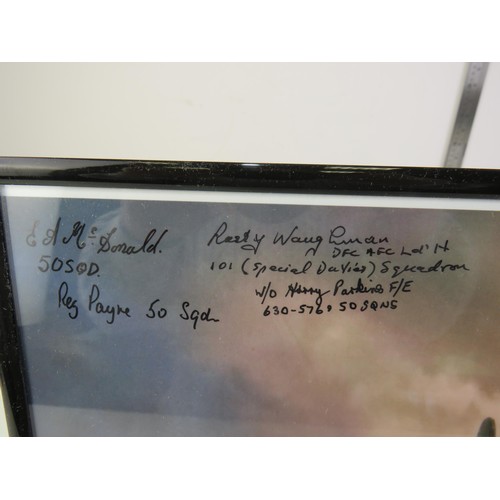 E A McDonald.
50 SQD.
Reg Payne 50 Sqdn
Rusty Waughman
DFC AFC Ld'H
101 (Special Duties) Squadron
W/O Harry Parkins F/E
630-576 50 SQNS